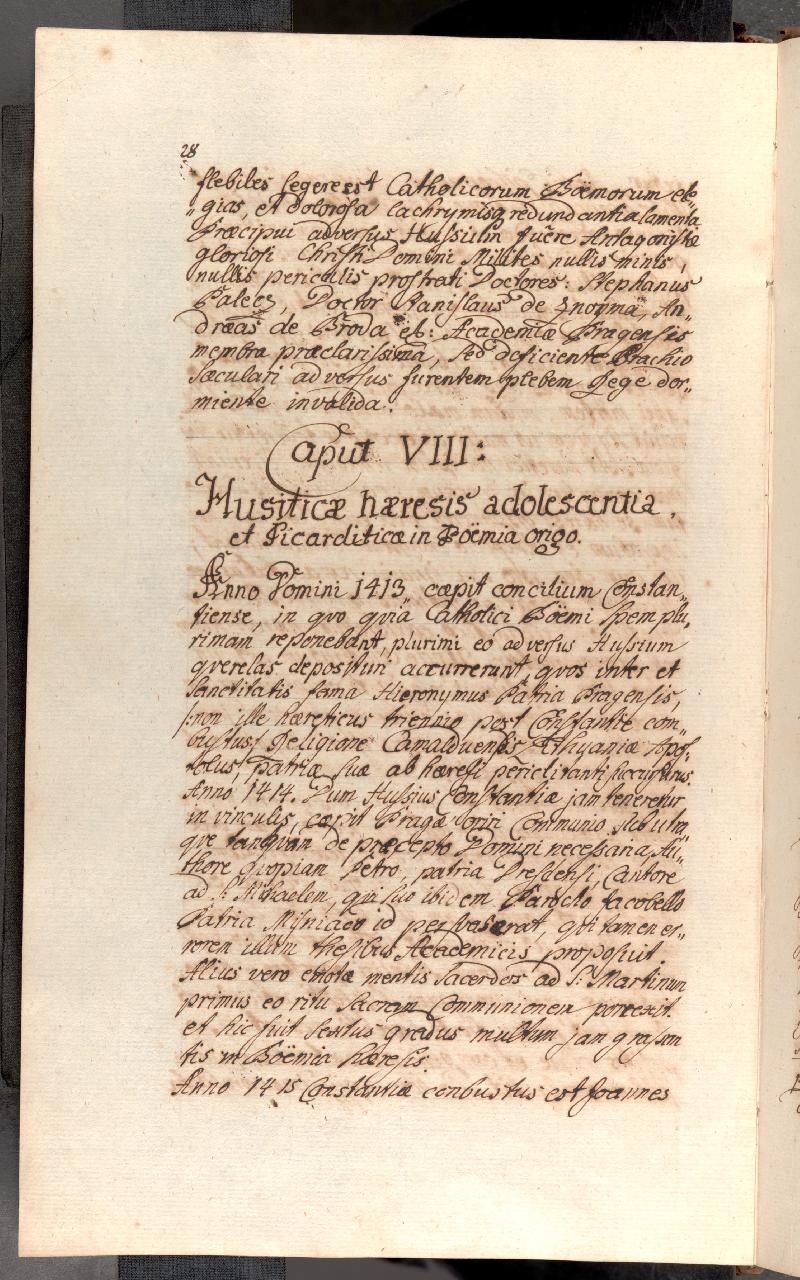 28
flebiles legere est Catholicorum Boëmorum ele„
„gias, et dolorosa lachrymisq redundantia lamenta
Præcipui adversus Hussium fuêre Antagonistæ
gloriosi Christi Domini Milites nullis minis,
nullis periculis prostrati Doctores: Stephanus
Palecz, Doctor Stanislaus de Znoyma, An„
dreas de Broda et: Academiæ Pragensis
membra præclarissima, sed deficiente Brachio
sæculari adversus furentem plebem Rege dor„
miente invalida.
Caput VIII:
Husiticæ hæresis adolescentia,
et Picarditicæ in Boëmia origo.
Anno Domini 1413„ cæpit concilium Constan„
tiense, in qvo qvia Catholici Boëmi spem plu„
rimam reponebant, plurimi eo adversus Hussium
qverelas deposituri accurrerunt, qvos inter et
Sanctitatis fama Hieronymus Patria Pragensis,
/:non ille hæreticus triennio post Constantiæ com„
bustus/ Religione Camalduensis Lithuaniæ Apos„
tolus, patriæ suæ ab hæresi periclitanti succursurus.
Anno 1414. Dum Hussius Constantiæ jam teneretur
in vinculis, cæpit Pragæ oriri Communio sub utra„
qve tanqvam de præcepto Domini necessaria, Au„
thore qvopiam Petro, patria Dresdensi, Cantore
ad S. Michaelem, qui suo ibidem Parocho Jacobello
Patria Misniaco id persvaserat, qvi tamen er„
rorem illum thesibus Academicis proposuit.
Alius vero emotæ mentis Sacerdos ad S. Martinum
primus eo ritu Sacram Communionem porrexit.
et hic fuit sextus gradus multum jam grassan
tis in Boëmia hæresis.
Anno 1415 Constantiæ conbustus est Joannes